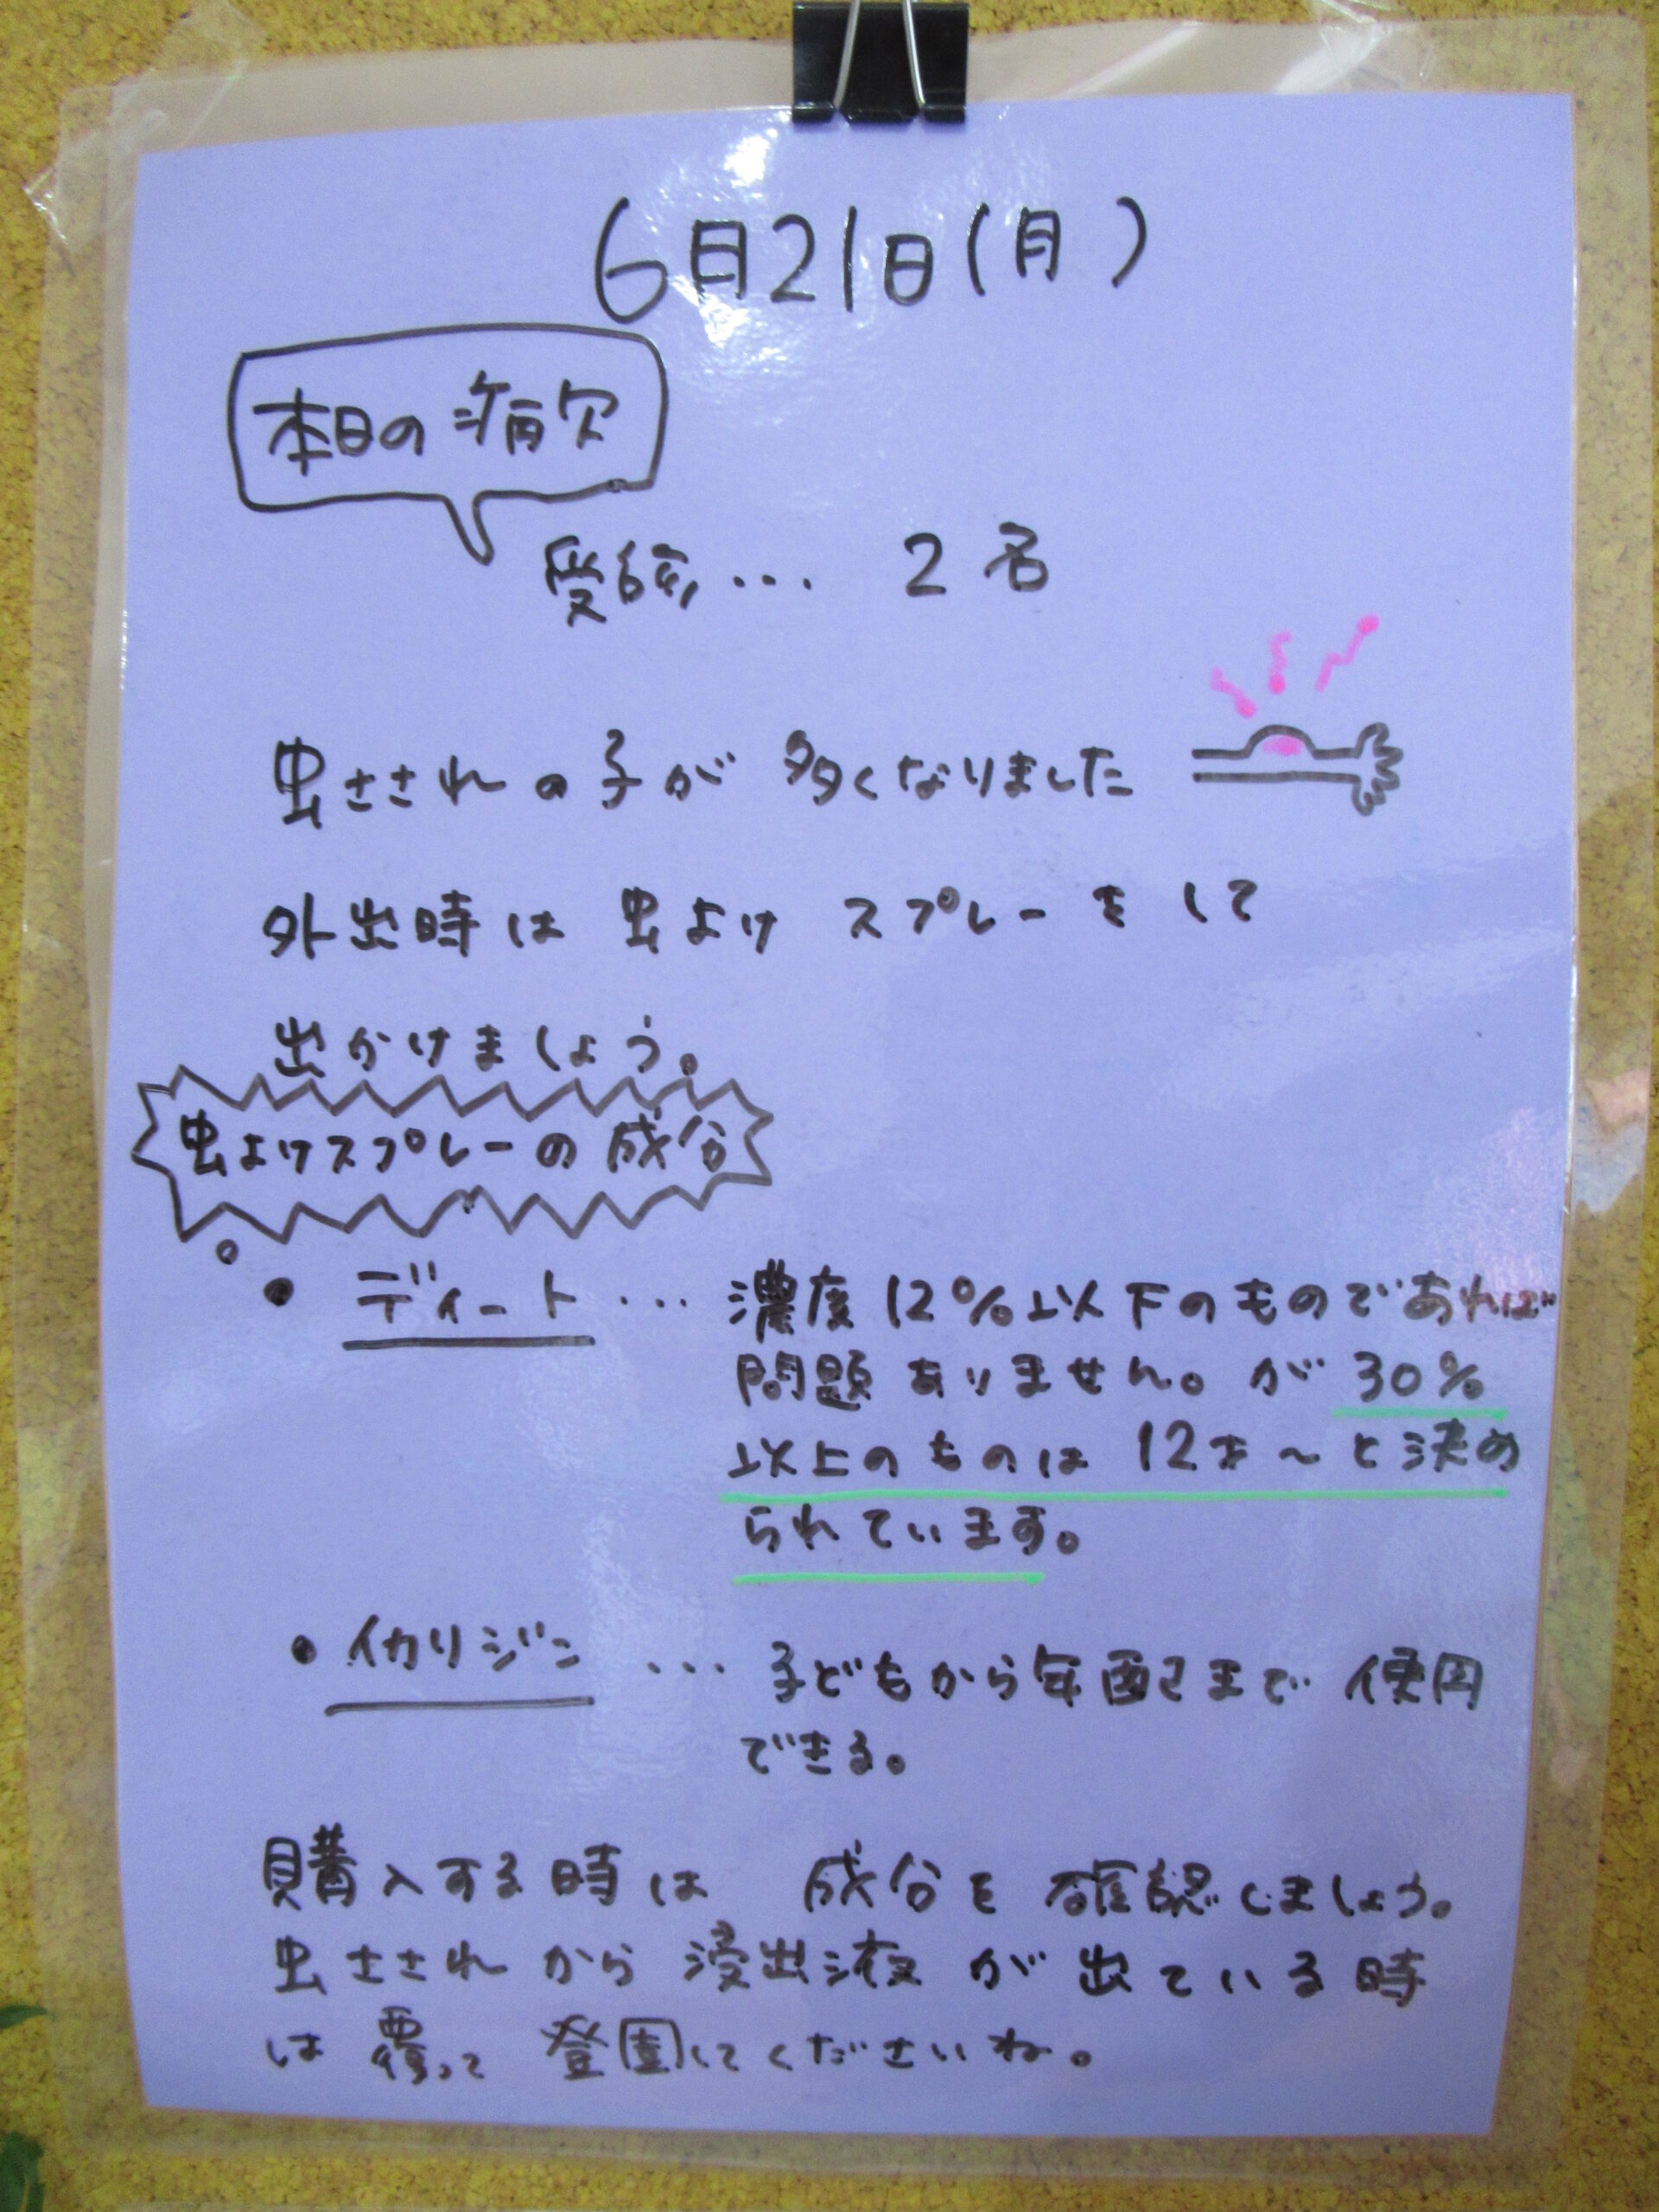 6月21日(月)
本日の病欠
受診… 2名
虫さされの子が 多くなりました
外出時は 虫よけ スプレーを して
出かけましょう。
虫よけスプレーの 成分
• ディート … 濃度 12%以下のものであれば
問題 ありません。が 30%
以上のものは 12才〜と決め
られています。
• イカリジン … 子どもから年配まで 使用
できる。
購入する時は 成分を 確認しましょう。
虫さされから 浸出液 が 出ている時
は 覆って 登園してくださいね。